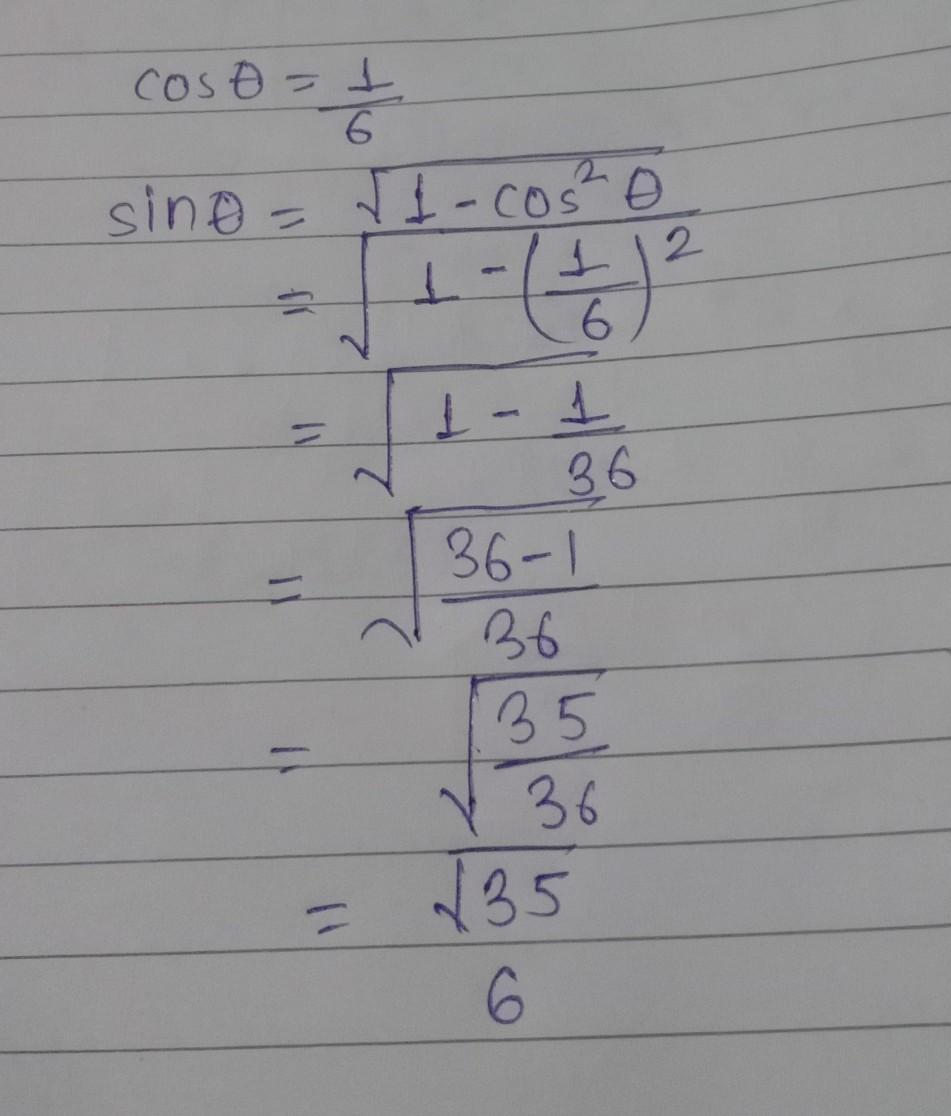 cosθ = 1/6
sinθ = √(1 - cos² θ)
= √(1 - (1/6)²)
= √(1 - 1/36)
= √((36-1)/36)
= √(35/36)
= √35/6